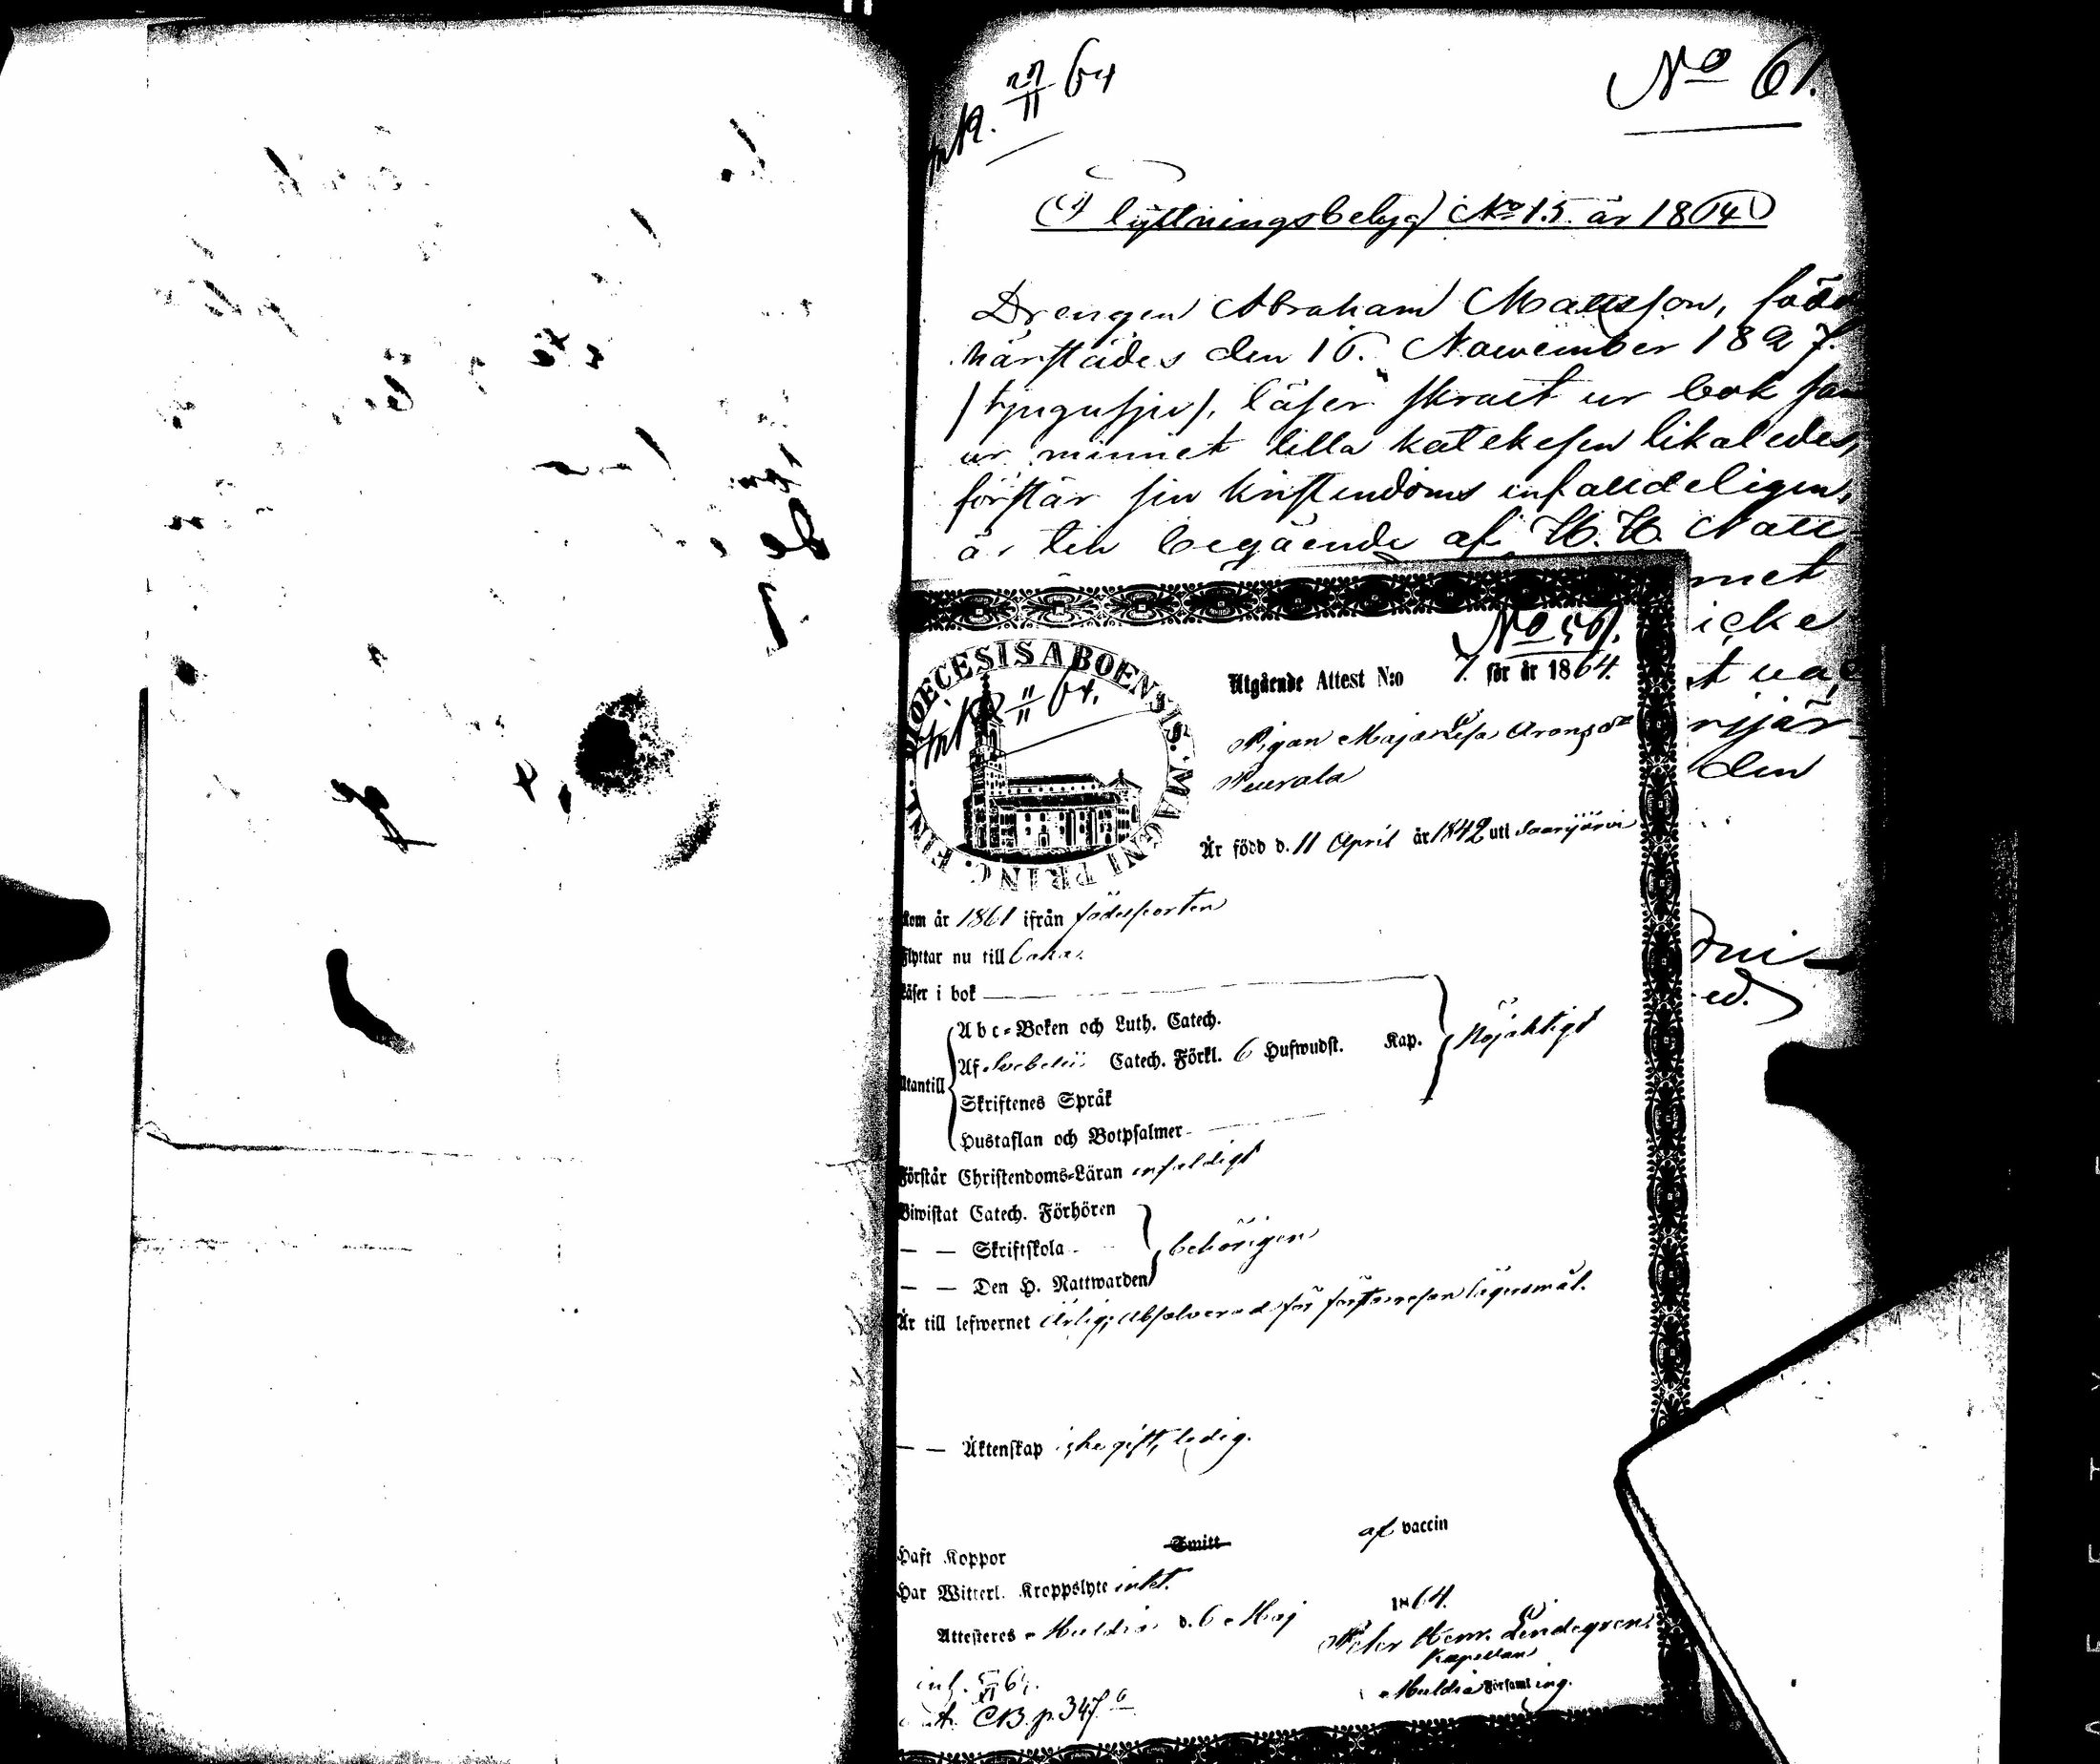 No 61.
27/11 64
Flyttningsbetyg No 15 år 1864
Drengen Abraham Mattsson, född
härstädes den 16. November 1827.
/tjugusju/, läser skralt ur bok sam
ur minnet lilla katekesen likaledes,
förstår sin kristendoms enfalldeligen,
är till begående af H. H. Natt
met
icke
t vac
rijär
den
ed.
No 561.
DIOECESIS ABOENSIS. MAGNI PRINC. FINL.
11/11 64.
Utgående Attest N:o 7. för år 1864.
Pigan Maja Lisa Aronsdr
Peurala
Är född d. 11 April år 1842 uti Saarijärvi
Kom år 1861 ifrån födelseorten
Flyttar nu till
Läser i bok
Abc-Boken och Luth. Catech.
Af Svebelii Catech. Förkl. 6 Hufwudst. Kap. Nöjaktigt
Utantill
Skriftenes Språk
Hustaflan och Botpsalmer
Förstår Christendoms-Läran enfaldigt
Biwistat Catech. Förhören
— — Skriftskola behörigen
— — Den H. Nattwarden
Är till lefwernet ärlig; absolverad för första resan lägersmål.
— — Äktenskap icke gift, ledig.
Haft Koppor Smitt af vaccin
Har Witterl. Kroppslyte intet.
Attesteres Multia d. 6 Maj 1864.
Petr Henr. Lindegren
Kapellan
Multia Församling.
CB. p. 347